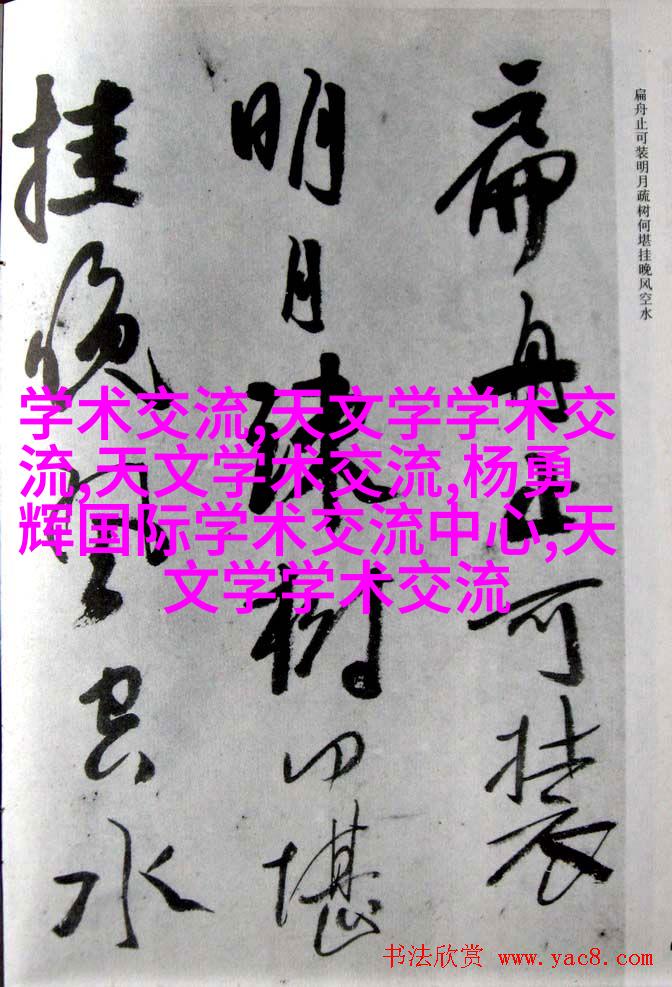 扁舟止可装
明月疏树何堪
挂晚风空水
扁舟止可装明月疏树何堪挂晚风空水
学术交流,天文学学术交
流,天文学术交流,杨勇
辉国际学术交流中心,天
文学学术交流
书法欣赏 www.yac8.com